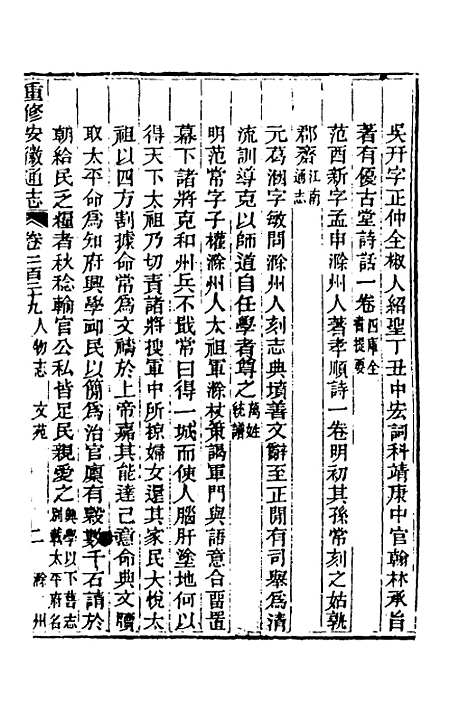 吳幵字正仲全椒人紹聖丁丑中宏詞科靖康中官翰林承旨
著有優古堂詩話一卷四庫全書提要
范酉新字孟申滁州人著孝順詩一卷明初其孫常刻之姑孰
郡齋江南通志
元葛淵字敏問滁州人刻志典墳善文辭至正閒有司舉為清
流訓導克以師道自任學者尊之萬姓統譜
明范常字子權滁州人太祖軍滁杖策謁軍門與語意合畱置
幕下諸將克和州兵不戢常曰得一城而使人腦肝塗地何以
得天下太祖乃切責諸將搜軍中所掠婦女還其家民大悅太
祖以四方割據命常為文禱於上帝嘉其能達己意命典文牘
取太平命為知府興學䘏民以簡為治官廩有穀數千石請於
朝給民之種者秋稔輸官公私皆足民親愛之興學以下舊志別載太平府名
重修安徽通志 卷二百二十九 人物志 文苑 二 滁州